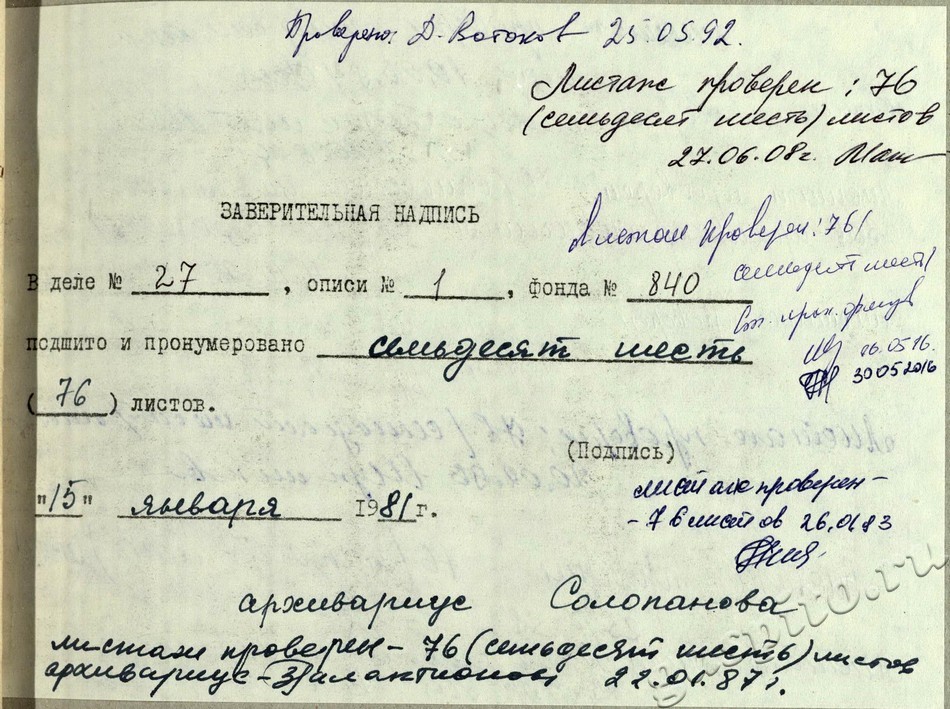 Проверено: Д. Вотоков 25.05.92.
Листаж проверен: 76
(семьдесят шесть) листов
27.06.08г.
ЗАВЕРИТЕЛЬНАЯ НАДПИСЬ
Листаж проверен: 76/
семьдесят шесть/
В деле № 27, описи № 1, фонда № 840
подшито и пронумеровано семьдесят шесть
16.05.16.
30 05 2016
(76) листов.
(Подпись)
листаж проверен -
"15" января 1981 г.
- 76 листов 26.01.83
архивариус Солопанова
листаж проверен - 76 (семьдесят шесть) листов
архивариус - 22.01.87 г.